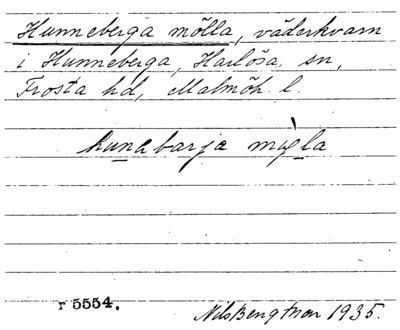 Hunneberga mölla, väderkvarn
i Hunneberga, Harlösa sn,
Frosta hd, Malmöh. l.
hunabarja mỳla
r 5554.
Nils Bengtsson 1935.